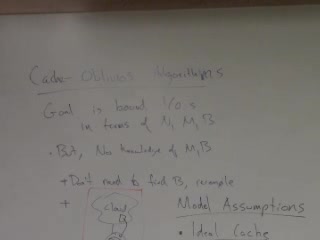 Cache Oblivious Algorithms
Goal is bound I/O s
in terms of N, M, B
• But, No knowledge of M, B
+ Don't need to find B, recompile
+
Cloud
B
Model Assumptions
• Ideal Cache